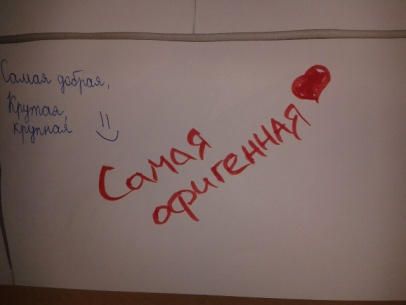 Самая добрая,
Крутая,
крупная
Самая
офигенная